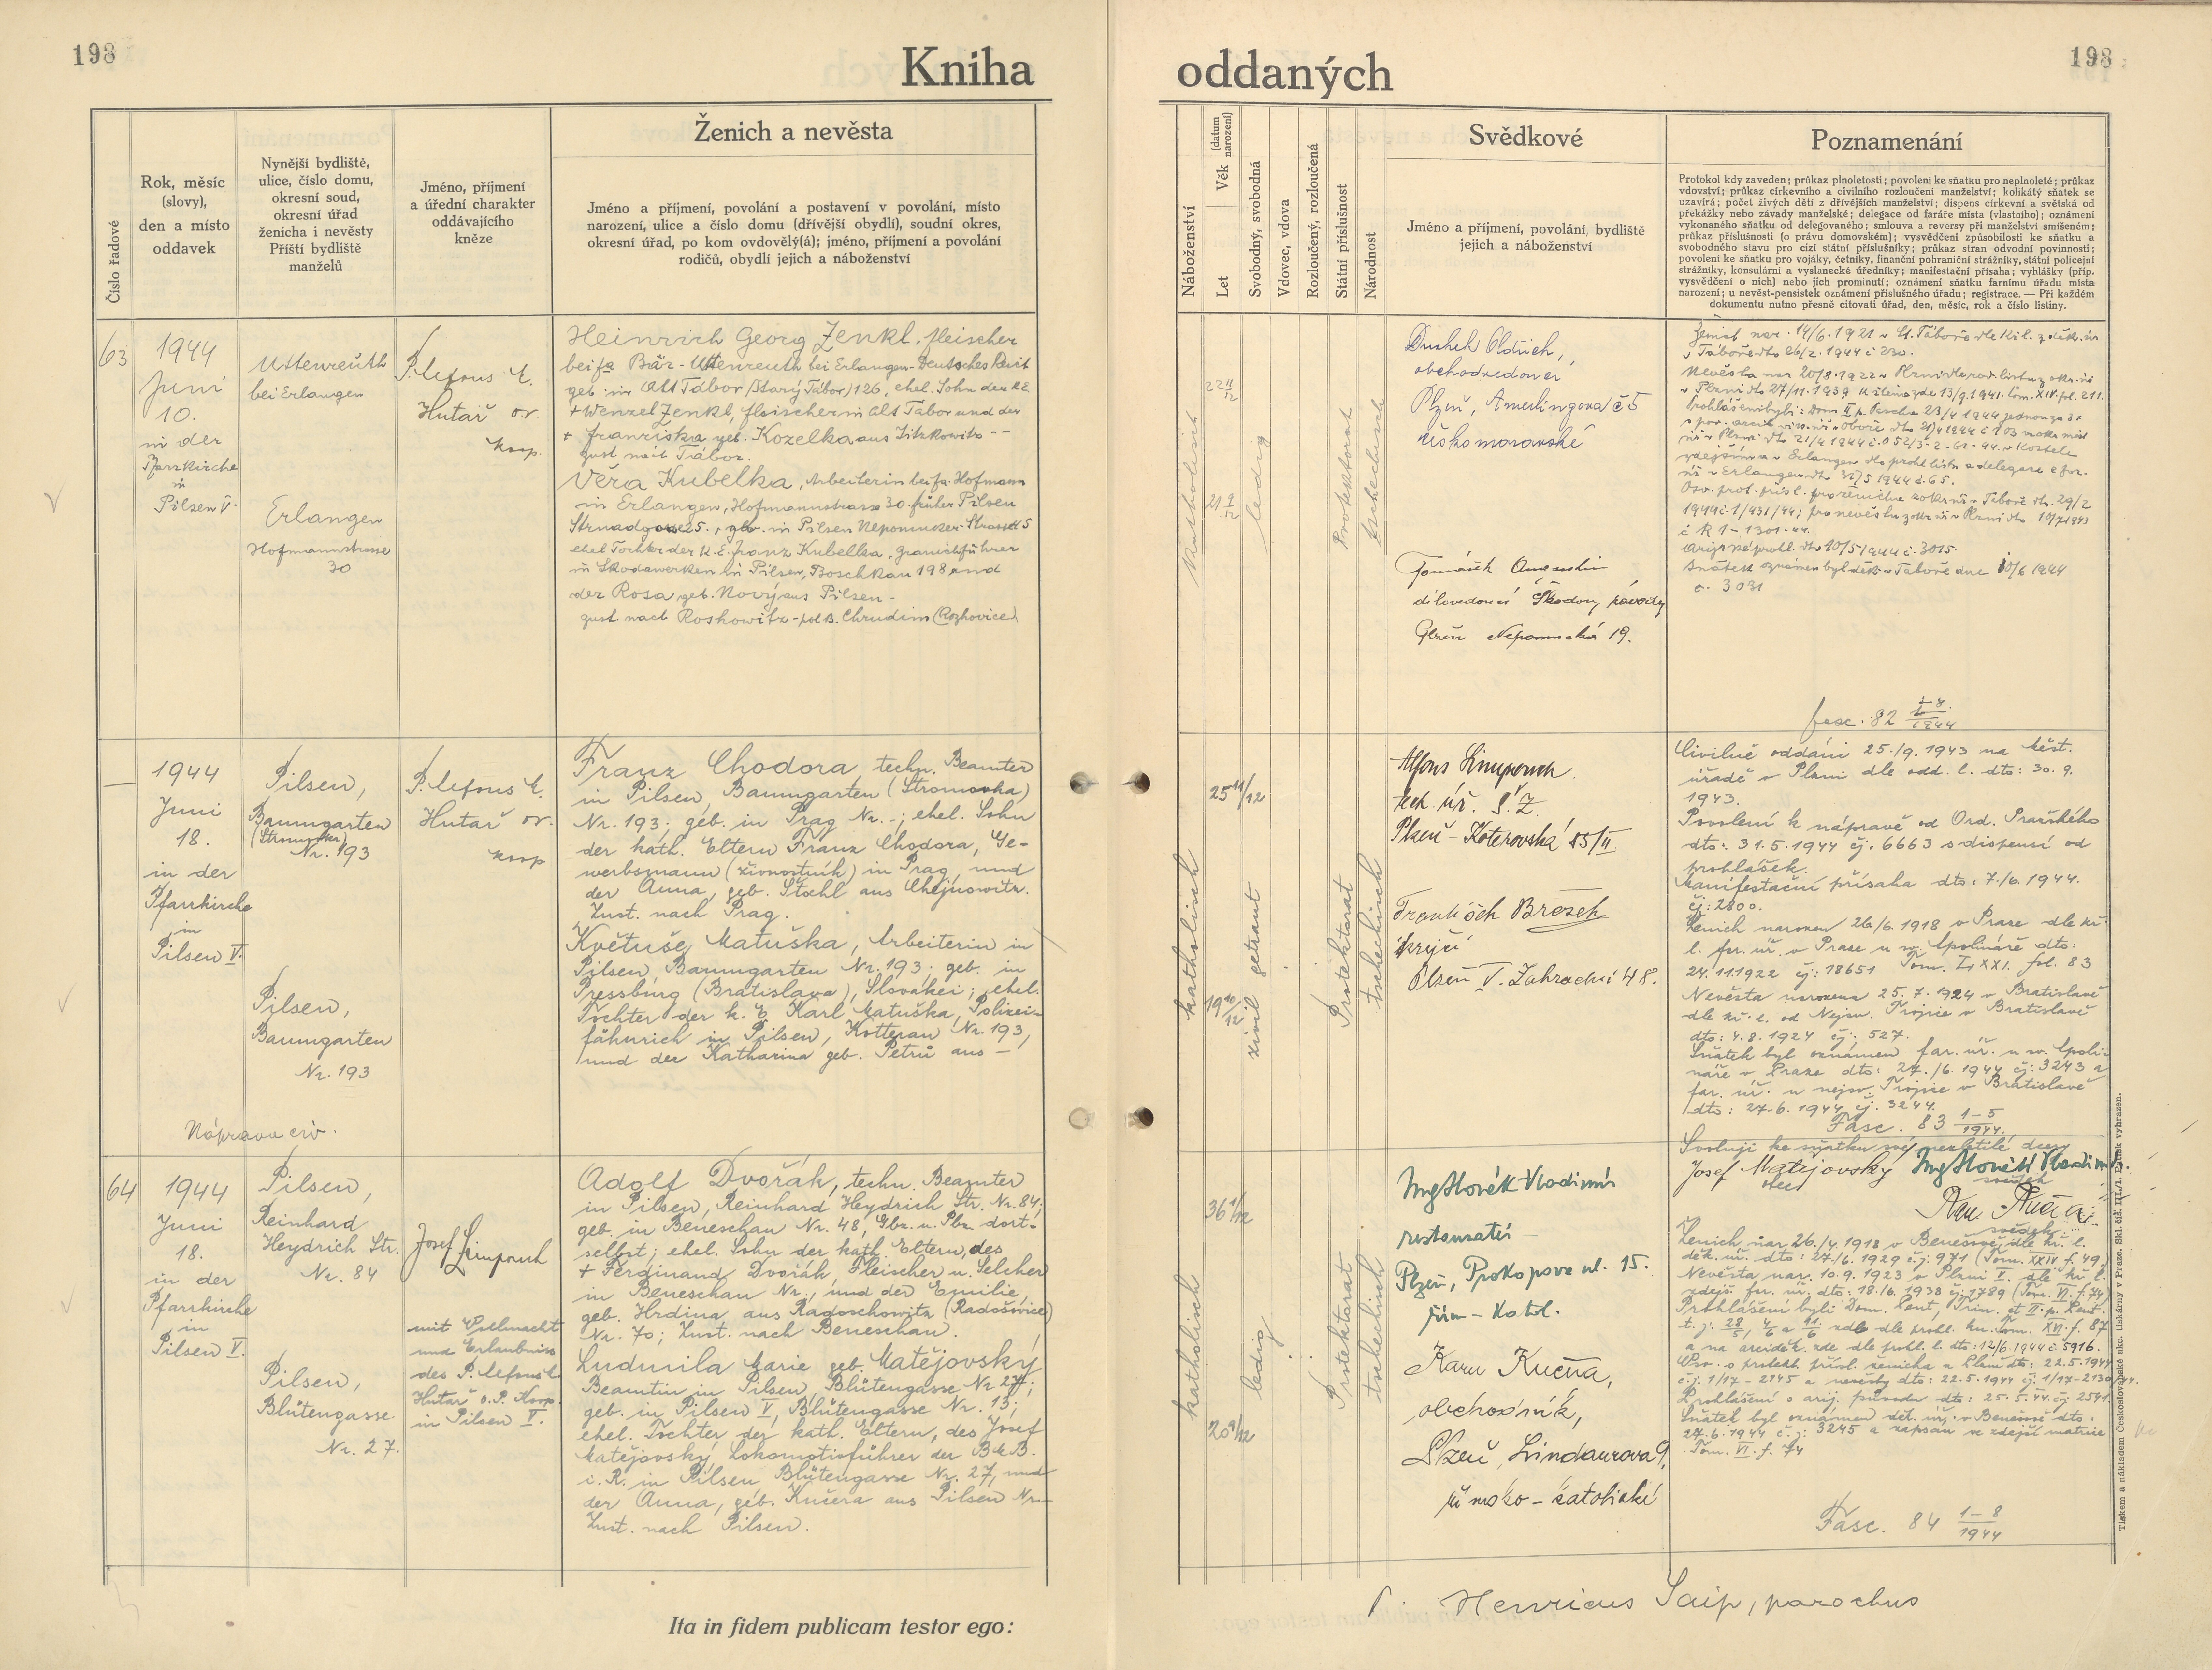 198
Kniha
Číslo řadové
Rok, měsíc
(slovy),
den a místo
oddavek
Nynější bydliště,
ulice, číslo domu,
okresní soud,
okresní úřad
ženicha i nevěsty
Příští bydliště
manželů
Jméno, příjmení
a úřední charakter
oddávajícího
kněze
Ženich a nevěsta
Jméno a příjmení, povolání a postavení v povolání, místo
narození, ulice a číslo domu (dřívější obydlí), soudní okres,
okresní úřad, po kom ovdovělý(á); jméno, příjmení a povolání
rodičů, obydlí jejich a náboženství
63
1944
Juni
10.
in der
Pfarrkirche
in
Pilsen V.
Uttenreuth
bei Erlangen
Erlangen
Hofmannstrasse
30
P. Alfons L.
Hutař or.
koop.
Heinrich Georg Zenkl, fleischer
bei fa Bär - Uttenreuth bei Erlangen - Deutsches Reich
geb. in Alt Tábor (Starý Tábor) 126, ehel. Sohn der k. E.
+ Wenzel Zenkl, fleischer in Alt Tabor und der
+ Franziska geb. Kozelka aus
zust. nach Tábor.
Věra Kubelka, Arbeiterin bei fa. Hofmann
in Erlangen, Hofmannstrasse 30 früher Pilsen
geb. in Pilsen Nepomuker-Strasse 5
ehel. Tochter der k. E. Franz Kubelka,
in Skodawerken in Pilsen, Boschkau 198 und
der Rosa geb. Nový aus Pilsen -
zust. nach Roshowitz - pol. B. Chrudim (Rozhovice)
1944
Juni
18.
in der
Pfarrkirche
in
Pilsen V.
Pilsen,
Baumgarten
(Stromovka)
Nr. 193
Pilsen,
Baumgarten
Nr. 193
Náprava civ.
P. Alfons L.
Hutař or.
koop
Franz Chodora, techn. Beamter
in Pilsen, Baumgarten (Stromovka)
Nr. 193; geb. in Prag Nr. -; ehel. Sohn
der kath. Eltern Franz Chodora, Ge-
werbsmann (živnostník) in Prag, und
der Anna, geb. Stochl aus Chejnowitz.
Zust. nach Prag.
Květuše Matuška, Arbeiterin in
Pilsen, Baumgarten Nr. 193; geb. in
Pressburg (Bratislava), Slovakei; ehel.
Tochter der k. E. Karl Matuška, Polizei-
fähnrich in Pilsen, Kotterau Nr. 193,
und der Katharina geb. Petrů aus -
64
1944
Juni
18.
in der
Pfarrkirche
in
Pilsen V.
Pilsen,
Reinhard
Heydrich Str.
Nr. 84
Pilsen,
Blütengasse
Nr. 27.
Josef Limpouch
mit Vollmacht
und Erlaubniss
des P. Alfons L.
Hutař o. P. Koop.
in Pilsen V.
Adolf Dvořák, techn. Beamter
in Pilsen, Reinhard Heydrich Str. Nr. 84;
geb. in Beneschau Nr. 48, Gbz. u. Pbz. dort-
selbst; ehel. Sohn der kath. Eltern, des
+ Ferdinand Dvořák, Fleischer u. Selcher
in Beneschau Nr., und der Emilie,
geb. Hrdina, aus Radoschowitz (Radošovice)
Nr. 70; Zust. nach Beneschau.
Ludmila Marie geb. Matějovský
Beamtin in Pilsen, Blütengasse Nr. 27;
geb. in Pilsen V, Blütengasse Nr. 13;
ehel. Tochter der kath. Eltern, des Josef
Matějovský, Lokomotivführer der BMB.
i. R. in Pilsen Blütengasse Nr. 27, und
der Anna, geb. Kučera aus Pilsen Nr. -
Zust. nach Pilsen.
Ita in fidem publicam testor ego:
oddaných
198
Náboženství
Let
Věk
(datum narození)
Svobodný, svobodná
Vdovec, vdova
Rozloučený, rozloučená
Státní příslušnost
Národnost
Svědkové
Jméno a příjmení, povolání, bydliště
jejich a náboženství
Poznamenání
Protokol kdy zaveden; průkaz plnoletosti; povolení ke sňatku pro neplnoleté; průkaz
vdovství; průkaz církevního a civilního rozloučení manželství; kolikátý sňatek se
uzavírá; počet živých dětí z dřívějších manželství; dispens církevní a světská od
překážky nebo závady manželské; delegace od faráře místa (vlastního); oznámení
vykonaného sňatku od delegovaného; smlouva a reversy při manželství smíšeném;
průkaz příslušnosti (o právu domovském); vysvědčení způsobilosti ke sňatku a
svobodného stavu pro cizí státní příslušníky; průkaz stran odvodní povinnosti;
povolení ke sňatku pro vojáky, četníky, finanční pohraniční strážníky, státní policejní
strážníky, konsulární a vyslanecké úředníky; manifestační přísaha; vyhlášky (příp.
vysvědčení o nich) nebo jich prominutí; oznámení sňatku farnímu úřadu místa
narození; u nevěst-pensistek oznámení příslušného úřadu; registrace. — Při každém
dokumentu nutno přesně citovati úřad, den, měsíc, rok a číslo listiny.
katholisch
22 11/12
21 9/12
ledig
Protektorat
tschechisch
Dushek Oldřich,
obchodvedoucí
Plzeň, Amerlingova č 5
českomoravské
Tomášek
dílovedoucí Škodovy závody
Plzeň Nepomucká 19.
Ženich nar. 14/6. 1921 v St. Táboře dle kř. l. z děk. úř.
v Táboře dto 26/2. 1944 č 230.
Nevěsta nar. 20/8. 1922 v Plzni dle rod. listu z okr. úř.
v Plzni dto 27/11. 1939
1944 č. 1/431/44; pro nevěstu z okr. úř. v Plzni dto 10/7 1943
č R 1 - 1301 - 44.
Arijské prohl. dto 20/5 1944 č. 3015.
Sňatek oznámen byl děk. v Táboře dne 20/6 1944
č. 3031
fasc. 82 1-8/1944
katholisch
25 11/12
19 10/12
zivil getraut
Protektorat
tschechisch
Alfons Limpouch
tech. úř. Š. Z.
Plzeň - Koterovská 85/II.
František Brosch
krejčí
Plzeň V. Zahradní 48.
Civilně oddáni 25./9. 1943 na měst.
úřadě v Plzni dle odd. l. dto: 30. 9.
1943.
Povolení k nápravě od Ord. Pražského
dto: 31. 5. 1944 čj. 6663 s dispensí od
prohlášek.
Manifestační přísaha dto: 7./6. 1944.
čj: 2800.
Ženich narozen 26/6. 1918 v Praze dle kř.
l. far. úř. v Praze u sv. Apolináře dto:
24. 11. 1922 čj: 18651 Tom. LXXI. fol. 83
Nevěsta narozena 25. 7. 1924 v Bratislavě
dle kř. l. od Nejsv. Trojice v Bratislavě
dto: 4. 8. 1924 čj. 527.
Sňatek byl oznámen far. úř. u sv. Apoli-
náře v Praze dto: 27./6. 1944 čj: 3243 a
far. úř. u nejsv. Trojice v Bratislavě
dto: 27-6. 1944 čj. 3244.
Fasc. 83 1-5/1944.
katholisch
36 1/12
20 9/12
ledig
Protektorat
tschechisch
Ing Slovák Vladimír
restauratér
Plzeň, Prokopova ul. 15.
řím - katol.
Karel Kučera,
obchodník,
Plzeň, Lindaurova 9,
římsko - katolické
Svoluji ke sňatku své nezletilé dcery
Josef Matějovský
otec
Ing Slovák Vladimír
svědek
Karel Kučera
svědek
Ženich nar. 26./4. 1918 v Benešově dle kř. l.
děk. úř. dto: 27./6. 1929 čj: 971 (Tom. XXIV f. 49)
Nevěsta nar. 10. 9. 1923 v Plzni V. dle kř l.
zdejš. far. úř. dto: 18./6. 1938 čj: 1789 (Tom. VI. f. 74)
Prohlášeni byli Dom. Pent., Trin. et II. p. Pent.
t. j: 28/5, 4/6 a 11/6 zde dle prohl. kn. Tom. XVI. f. 87
a na arciděk. zde dle prohl. l. dto: 12/6. 1944 č. 5916.
Osv. o protekt. přísl. ženicha z Plzně dto: 22. 5. 1944
č. j: 1/17 - 2145 a nevěsty dto: 22. 5. 1944 čj. 1/17 - 2130/44.
Prohlášení o arij. původu dto: 25. 5. 44. čj: 2541.
Sňatek byl oznámen děk. úř. v Benešově dto:
27. 6. 1944 č. j: 3245 a zapsán ve zdejší matrice
Tom. VI. f. 74
Fasc. 84 1-8/1944
P. Henricus Saip, parochus
Tiskem a nákladem Československé akc. tiskárny v Praze. Skl. čís. III./1. Patisk vyhrazen.